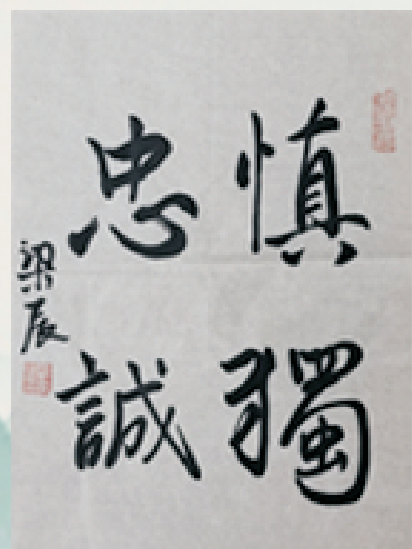 慎獨
忠誠
梁辰